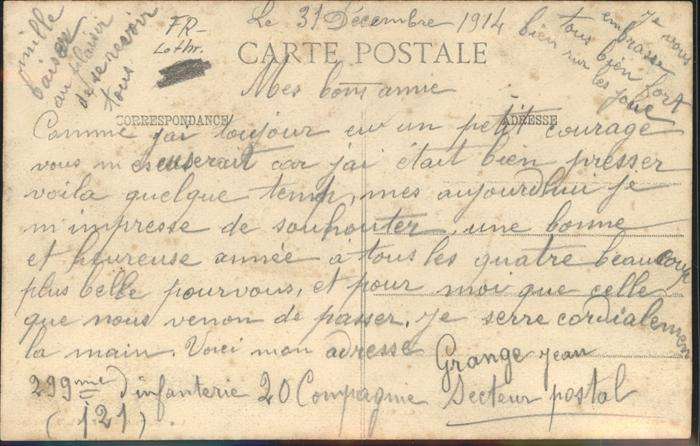 Le 31 Décembre 1914
FR-
Lothr.
CARTE POSTALE
mille
baiser
au plaisir
de se revoir
tous
je vous
embrasse
tous bien fort
bien sur les joue
Mes bons amie
CORRESPONDANCE
ADRESSE
Comme j'ai toujour eu un petit courage
vous m'escuserait car j'ai était bien presser
voila quelque temp, mes aujourdhui je
m'impresse de souhouter, une bonne
et heureuse année à tous les quatre beaucoup
plus belle pourvous, et pour moi que celle
que nous venon de passer. je serre cordialement
la main. Voici mon adresse Grange Jean
299me d'infanterie 20 Compagnie Secteur postal
(121)